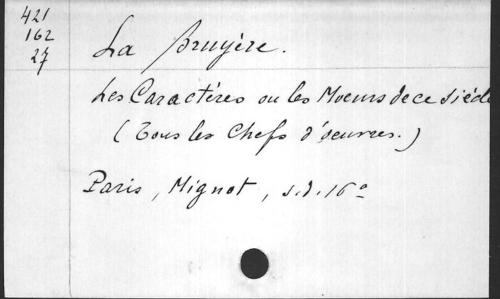 421
162
27
La Bruyère.
Les Caractères ou les Moeurs de ce siècle
(Tous les Chefs d'oeuvres.)
Paris, Mignot, s.d. 16º